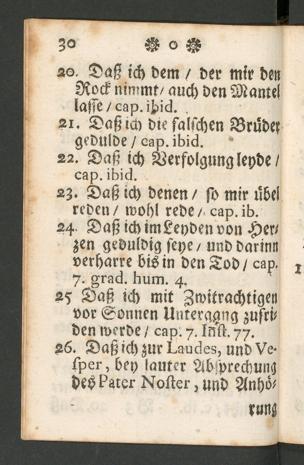 30 ❁ o ❁
20. Daß ich dem / der mir den
Rock nimmt / auch den Mantel
lasse / cap. ibid.
21. Daß ich die falschen Brüder
gedulde / cap. ibid.
22. Daß ich Verfolgung leyde /
cap. ibid.
23. Daß ich denen / so mir übel
reden / wohl rede / cap. ib.
24. Daß ich im Leyden von Her-
zen geduldig seye / und darinn
verharre bis in den Tod / cap.
7. grad. hum. 4.
25 Daß ich mit Zwitrachtigen
vor Sonnen Untergang zufri-
den werde / cap. 7. Inst. 77.
26. Daß ich zur Laudes, und Ve-
sper, bey lauter Absprechung
des Pater Noster, und Anhö-
rung